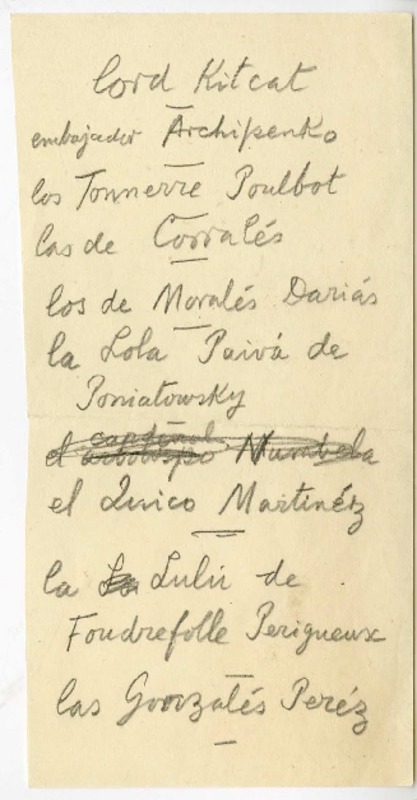 lord Kitcat
embajador Archipenko
los Tonnerre Poulbot
las de Corralés
los de Moralés Dariás
la Lola Paivá de
Poniatowsky
el cardenal
el Quico Martinéz
la Lulú de
Foudrefolle Perigueux
las Gonzalés Peréz